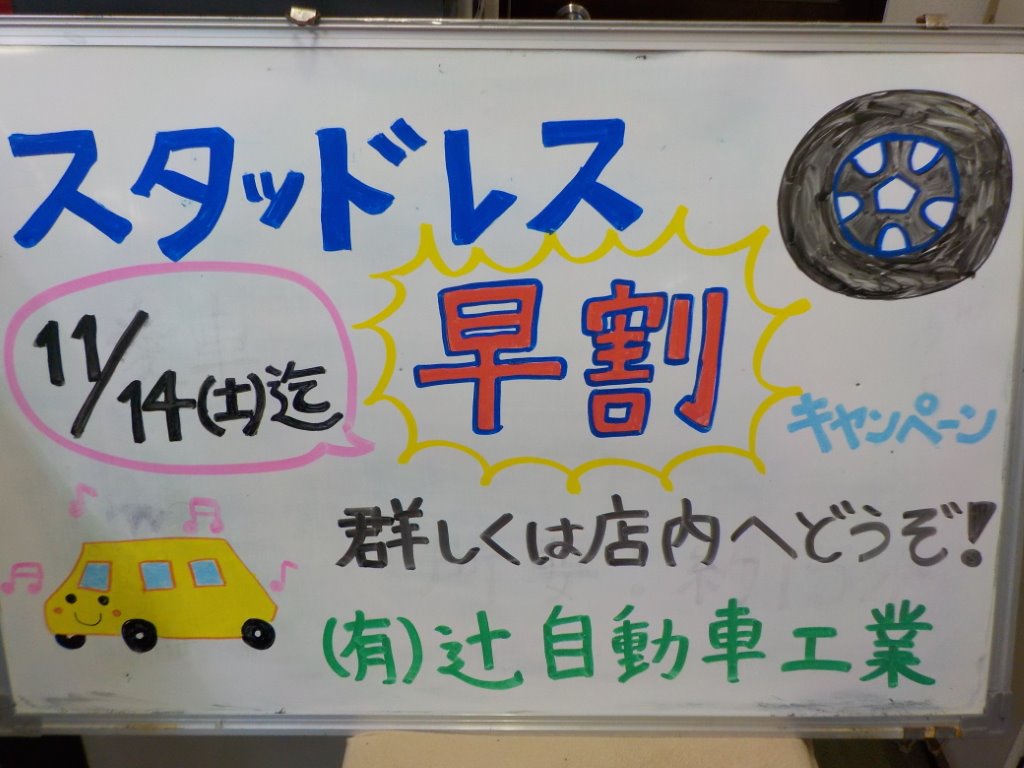 スタッドレス
早割
11/14(土)迄
キャンペーン
群しくは店内へどうぞ!
(有)辻自動車工業